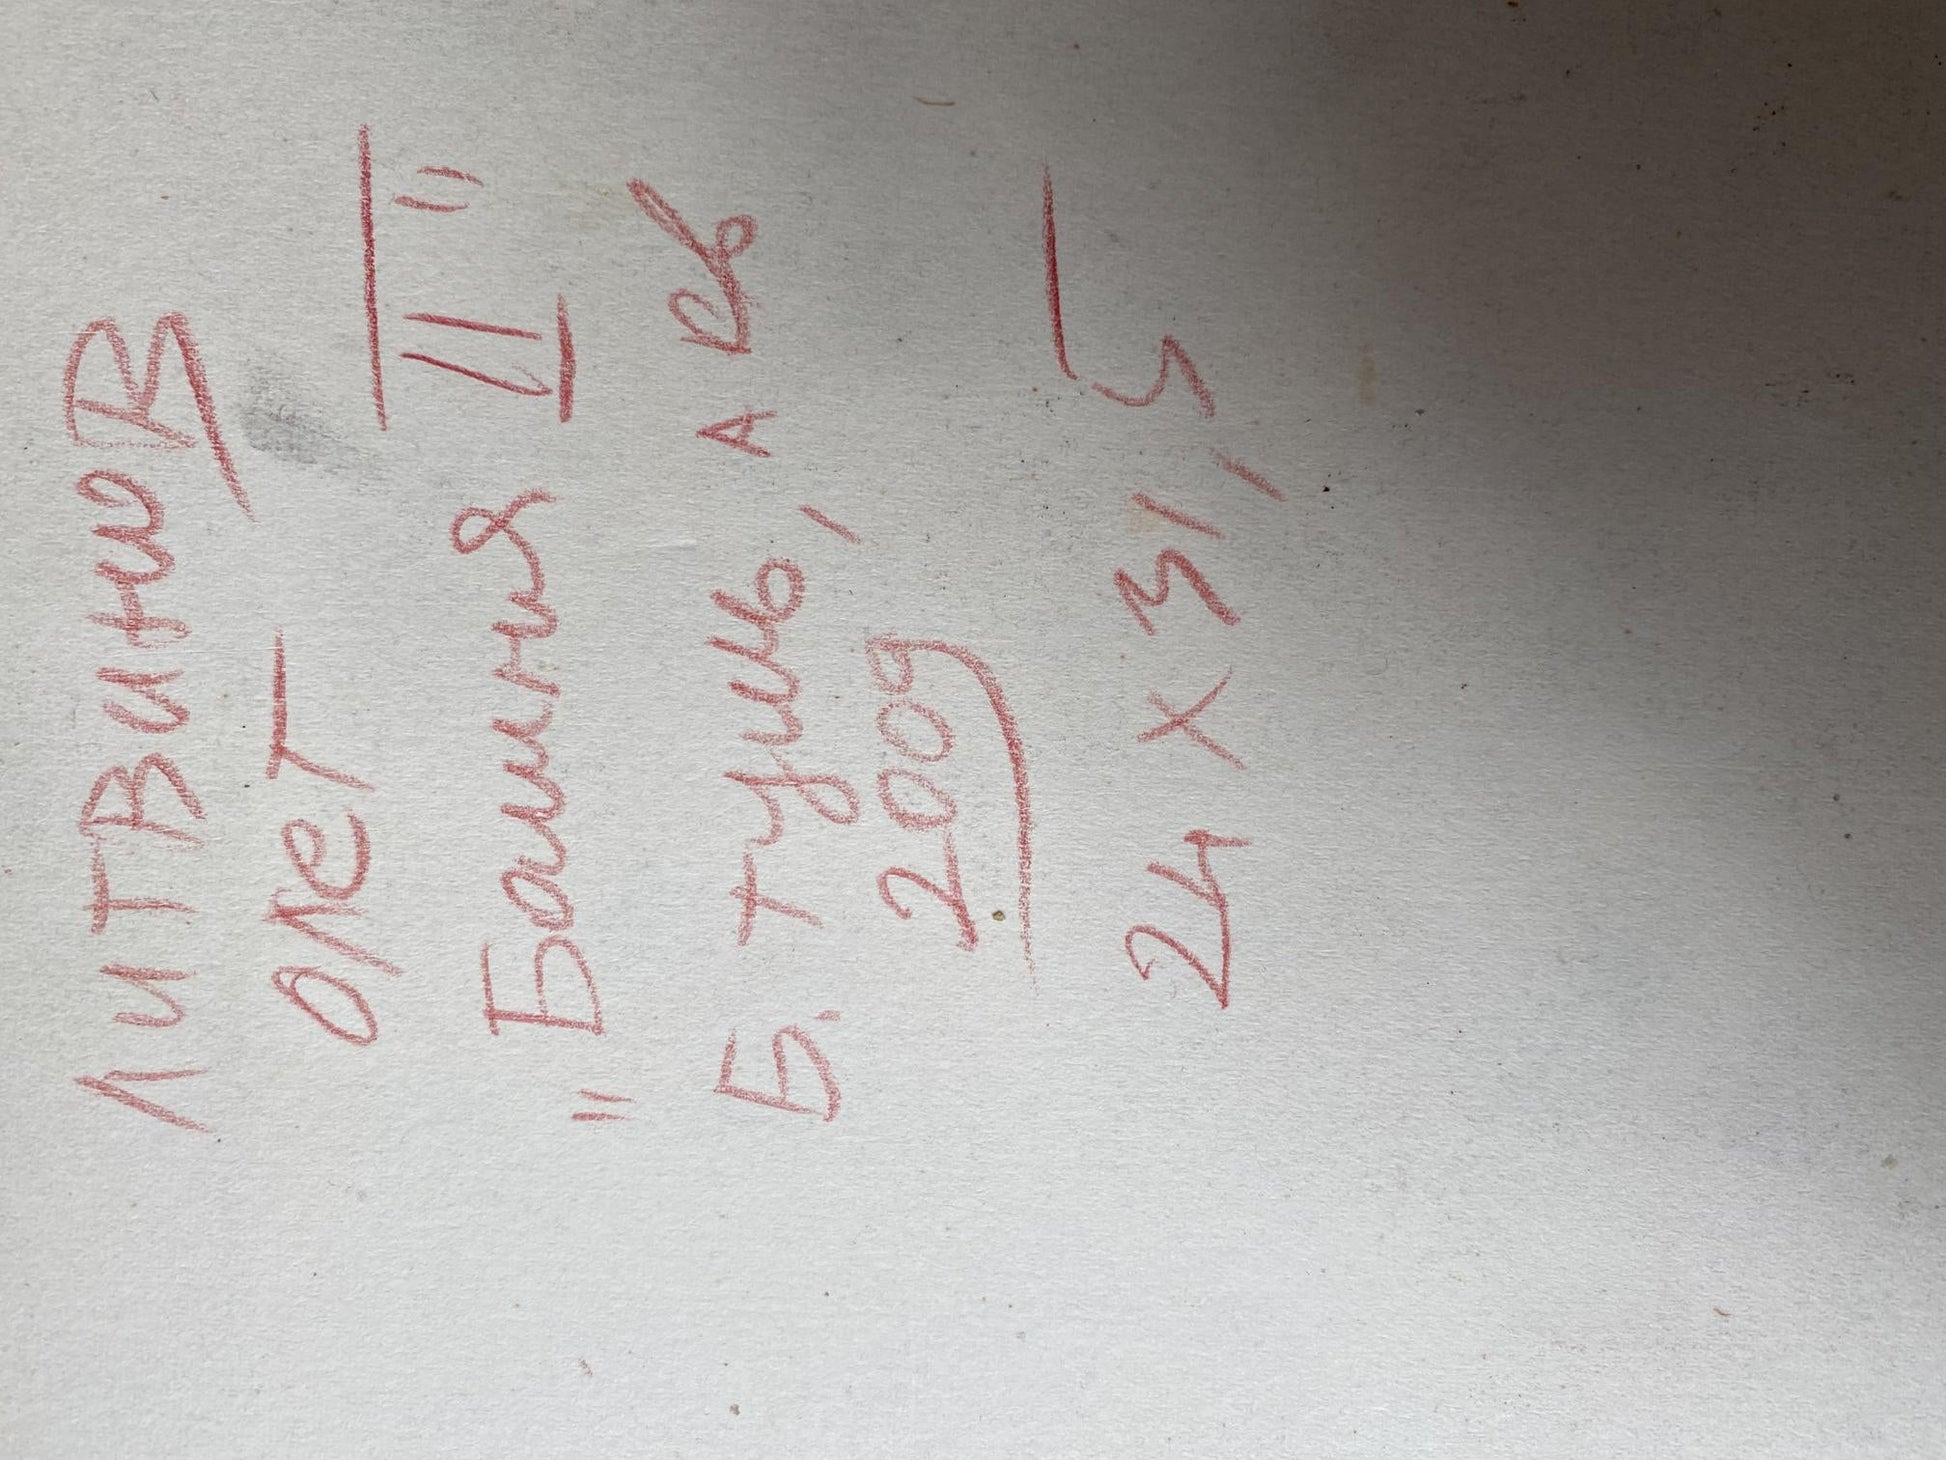 ЛИТВИНОВ
ОЛЕГ
"Башня II"
Б. тушь, акв
2009
24 X 31,5